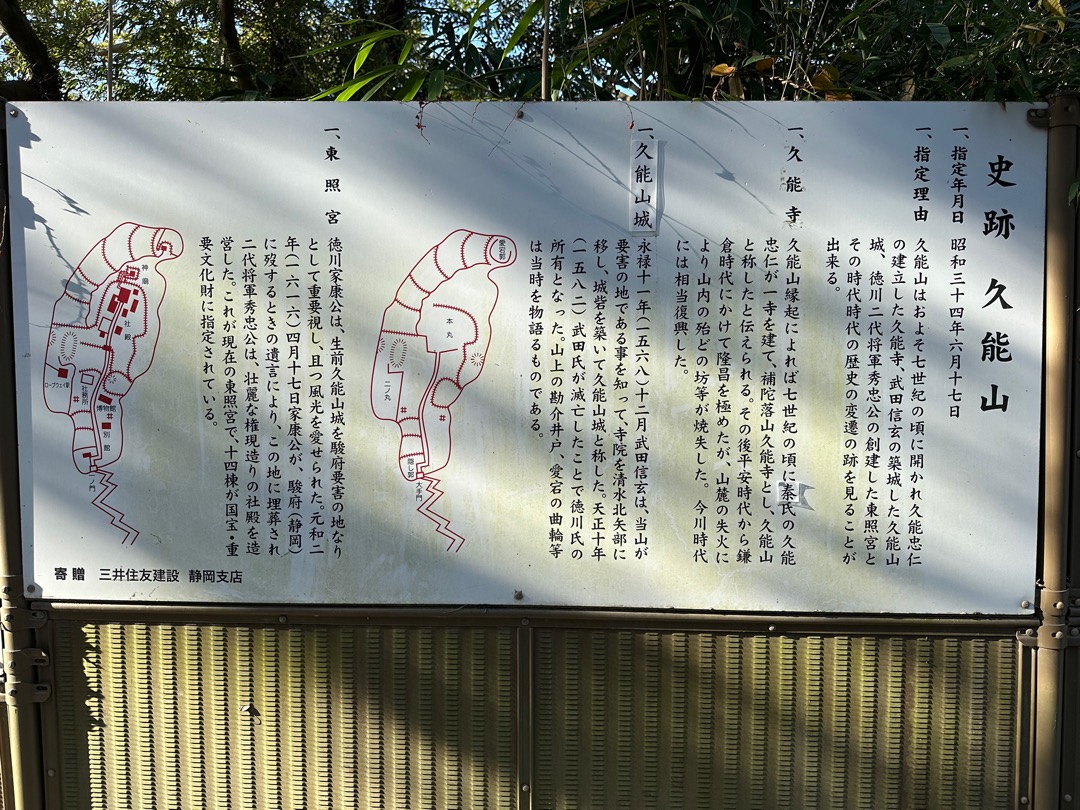 史跡 久能山
一、指定年月日 昭和三十四年六月十七日
一、指定理由 久能山はおよそ七世紀の頃に開かれ久能忠仁
の建立した久能寺、武田信玄の築城した久能山
城、徳川二代将軍秀忠公の創建した東照宮と
その時代時代の歴史の変遷の跡を見ることが
出来る。
一、久能寺 久能山縁起によれば七世紀の頃に秦氏の久能
忠仁が一寺を建て、補陀落山久能寺とし、久能山
と称したと伝えられる。その後平安時代から鎌
倉時代にかけて隆昌を極めたが、山麓の失火に
より山内の殆どの坊等が焼失した。今川時代
には相当復興した。
一、久能山城 永禄十一年(一五六八)十二月武田信玄は、当山が
要害の地である事を知って、寺院を清水北矢部に
移し、城砦を築いて久能山城と称した。天正十年
(一五八二)武田氏が滅亡したことで徳川氏の
所有となった。山上の勘介井戸、愛宕の曲輪等
は当時を物語るものである。
愛宕郭
本丸
二ノ丸
隠し郭
大手門
一、東照宮 徳川家康公は、生前久能山城を駿府要害の地なり
として重要視し、且つ風光を愛せられた。元和二
年(一六一六)四月十七日家康公が、駿府(静岡)
に歿するときの遺言により、この地に埋葬され
二代将軍秀忠公は、壮麗な権現造りの社殿を造
営した。これが現在の東照宮で、十四棟が国宝・重
要文化財に指定されている。
神廟
社殿
ロープウェイ駅
社務所
博物館
別館
一ノ門
寄贈 三井住友建設 静岡支店